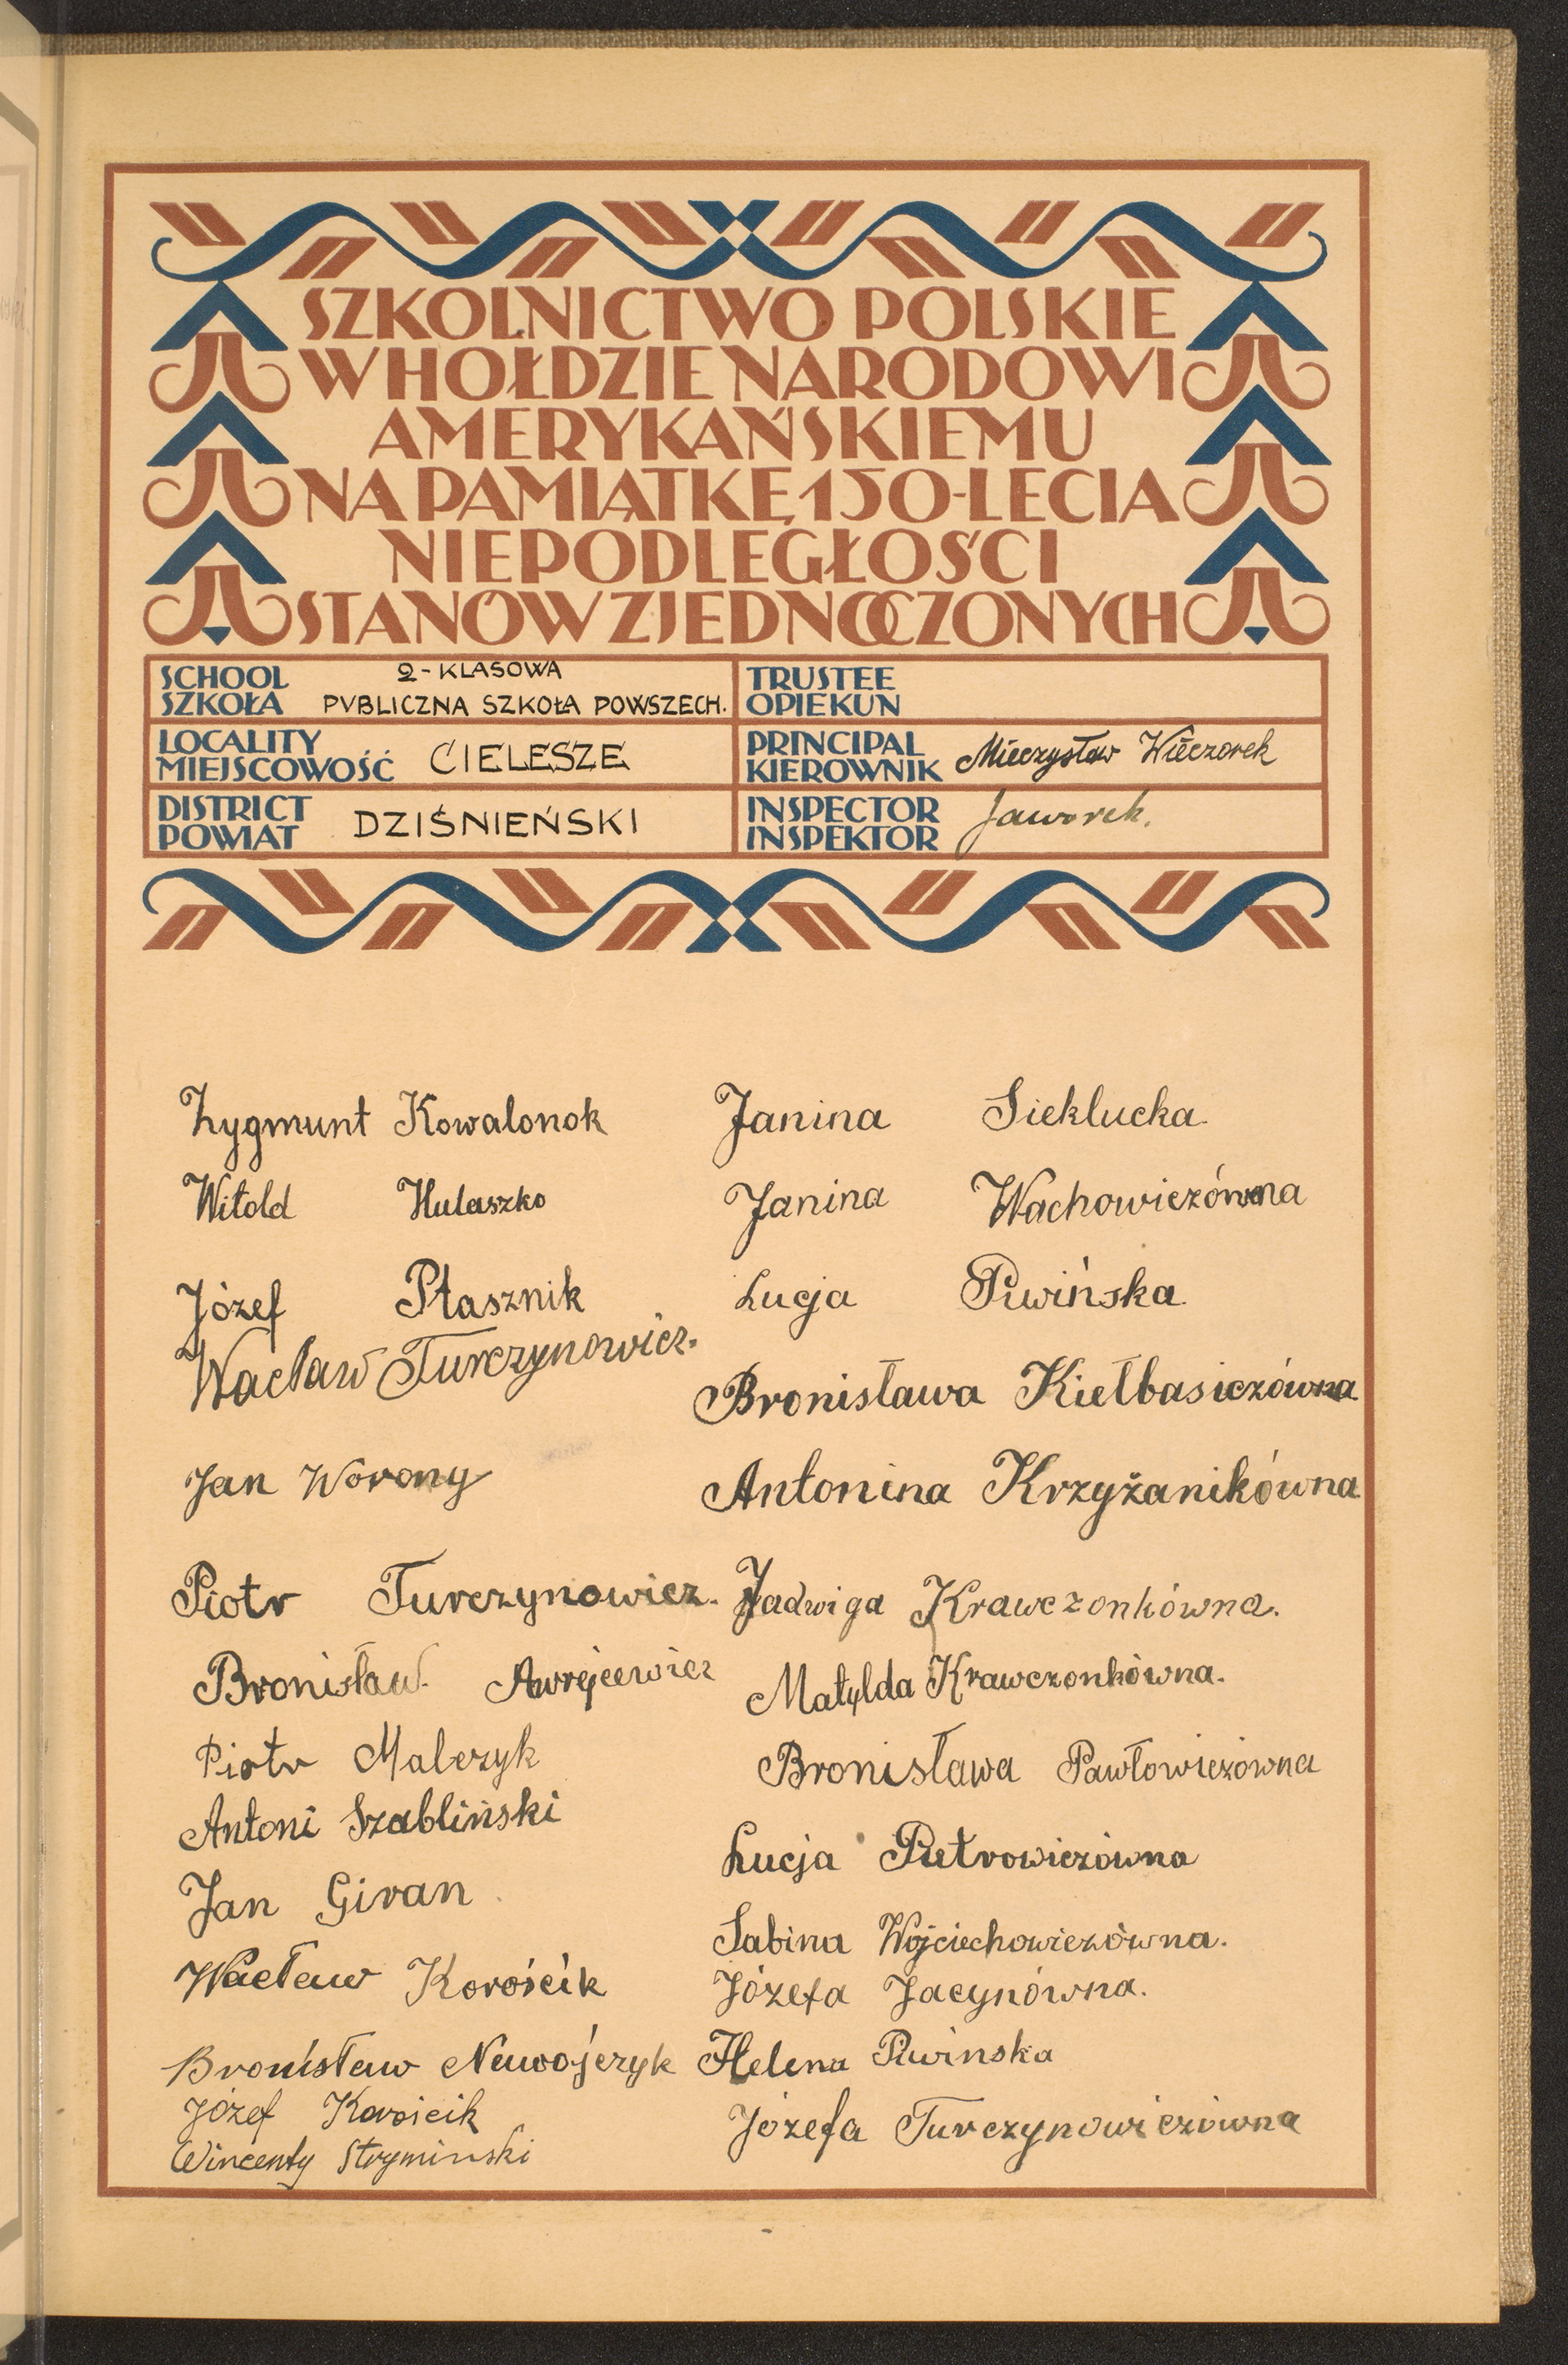 SZKOLNICTWO POLSKIE
W HOŁDZIE NARODOWI
AMERYKAŃSKIEMU
NA PAMIĄTKĘ 150-LECIA
NIEPODLEGŁOŚCI
STANÓW ZJEDNOCZONYCH
SCHOOL
SZKOŁA
2-KLASOWA
PVBLICZNA SZKOŁA POWSZECH.
TRUSTEE
OPIEKUN
LOCALITY
MIEJSCOWOŚĆ
CIELESZE
PRINCIPAL
KIEROWNIK
Mieczysław Wieczorek
DISTRICT
POWIAT
DZIŚNIEŃSKI
INSPECTOR
INSPEKTOR
Jaworek.
Zygmunt Kowalonok
Witold Hulaszko
Józef Ptasznik
Wacław Turczynowicz.
Jan Worony
Piotr Turczynowicz.
Bronisław. Awrejcewicz
Piotr Malczyk
Antoni Szabliński
Jan Giran
Wacław Korościk
Bronisław Nawojczyk
Józef Korościk
Wincenty Stryminski
Janina Sieklucka.
Janina Wachowiczówna
Łucja Piwińska.
Bronisława Kiełbasiczówna
Antonina Krzyżanikówna
Jadwiga Krawczonkówna.
Matylda Krawczonkówna.
Bronisława Pawłowiczówna
Łucja Pietrowiczówna
Sabina Wojciechowiczówna.
Józefa Jacynówna.
Helena Piwinska
Józefa Turczynowiczówna